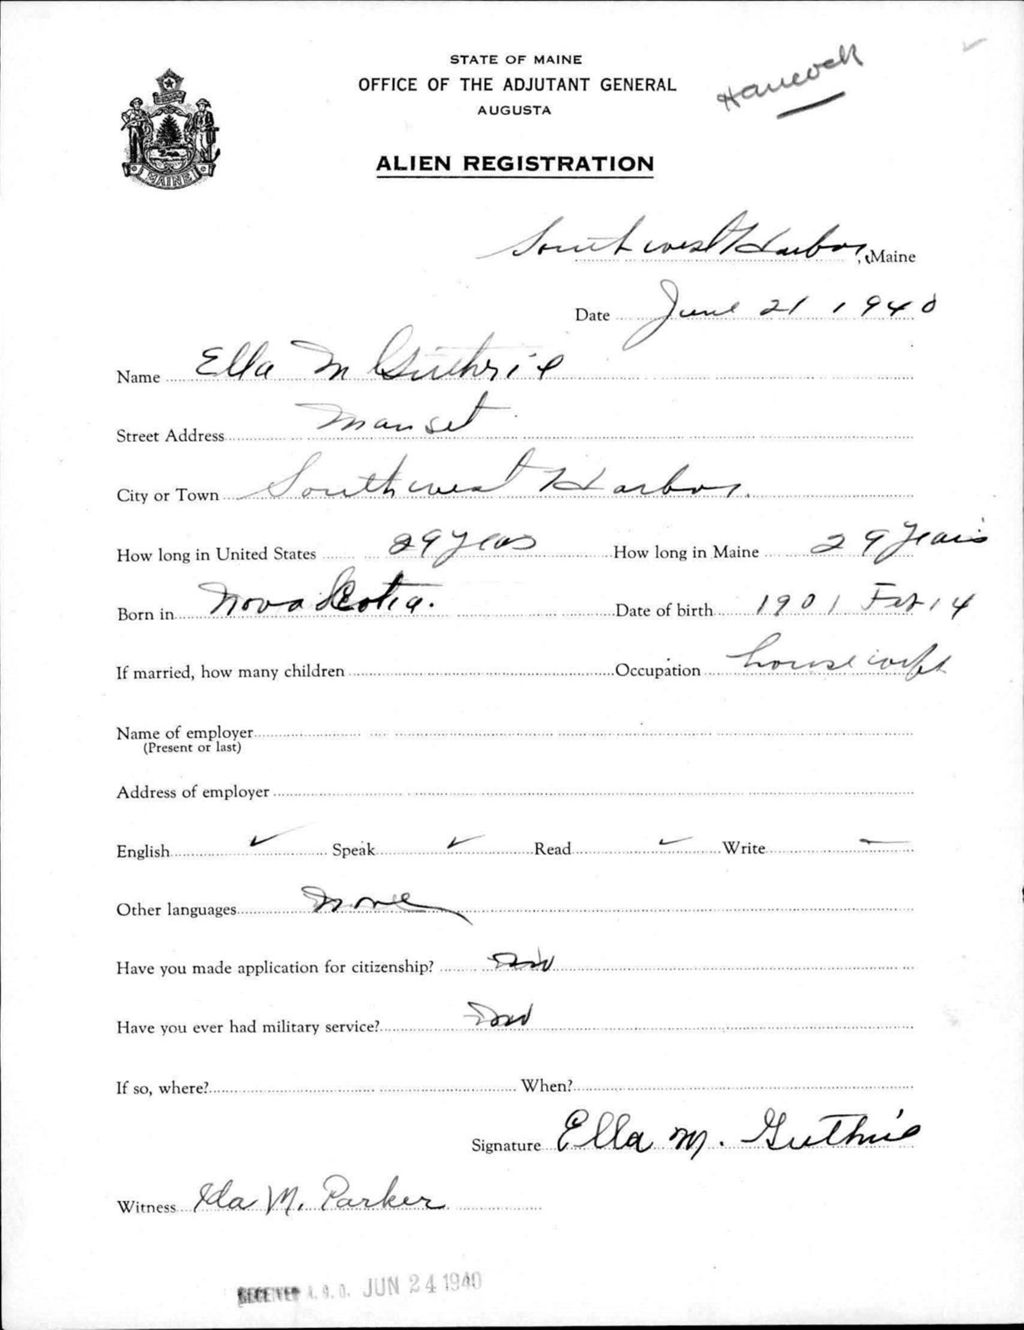 STATE OF MAINE
OFFICE OF THE ADJUTANT GENERAL
AUGUSTA
Hancock
ALIEN REGISTRATION
MAINE
Southwest Harbor, Maine
Date June 21, 1940
Name Ella M Guthrie
Street Address Manset
City or Town Southwest Harbor.
How long in United States 29 years How long in Maine 29 Years
Born in Nova Scotia. Date of birth 1901 Feb 14
If married, how many children Occupation housewife
Name of employer
(Present or last)
Address of employer
English ✓ Speak ✓ Read ✓ Write —
Other languages None
Have you made application for citizenship? No
Have you ever had military service? No
If so, where? When?
Signature Ella M. Guthrie
Witness Ida M. Parker
RECEIVED A.G.O. JUN 24 1940